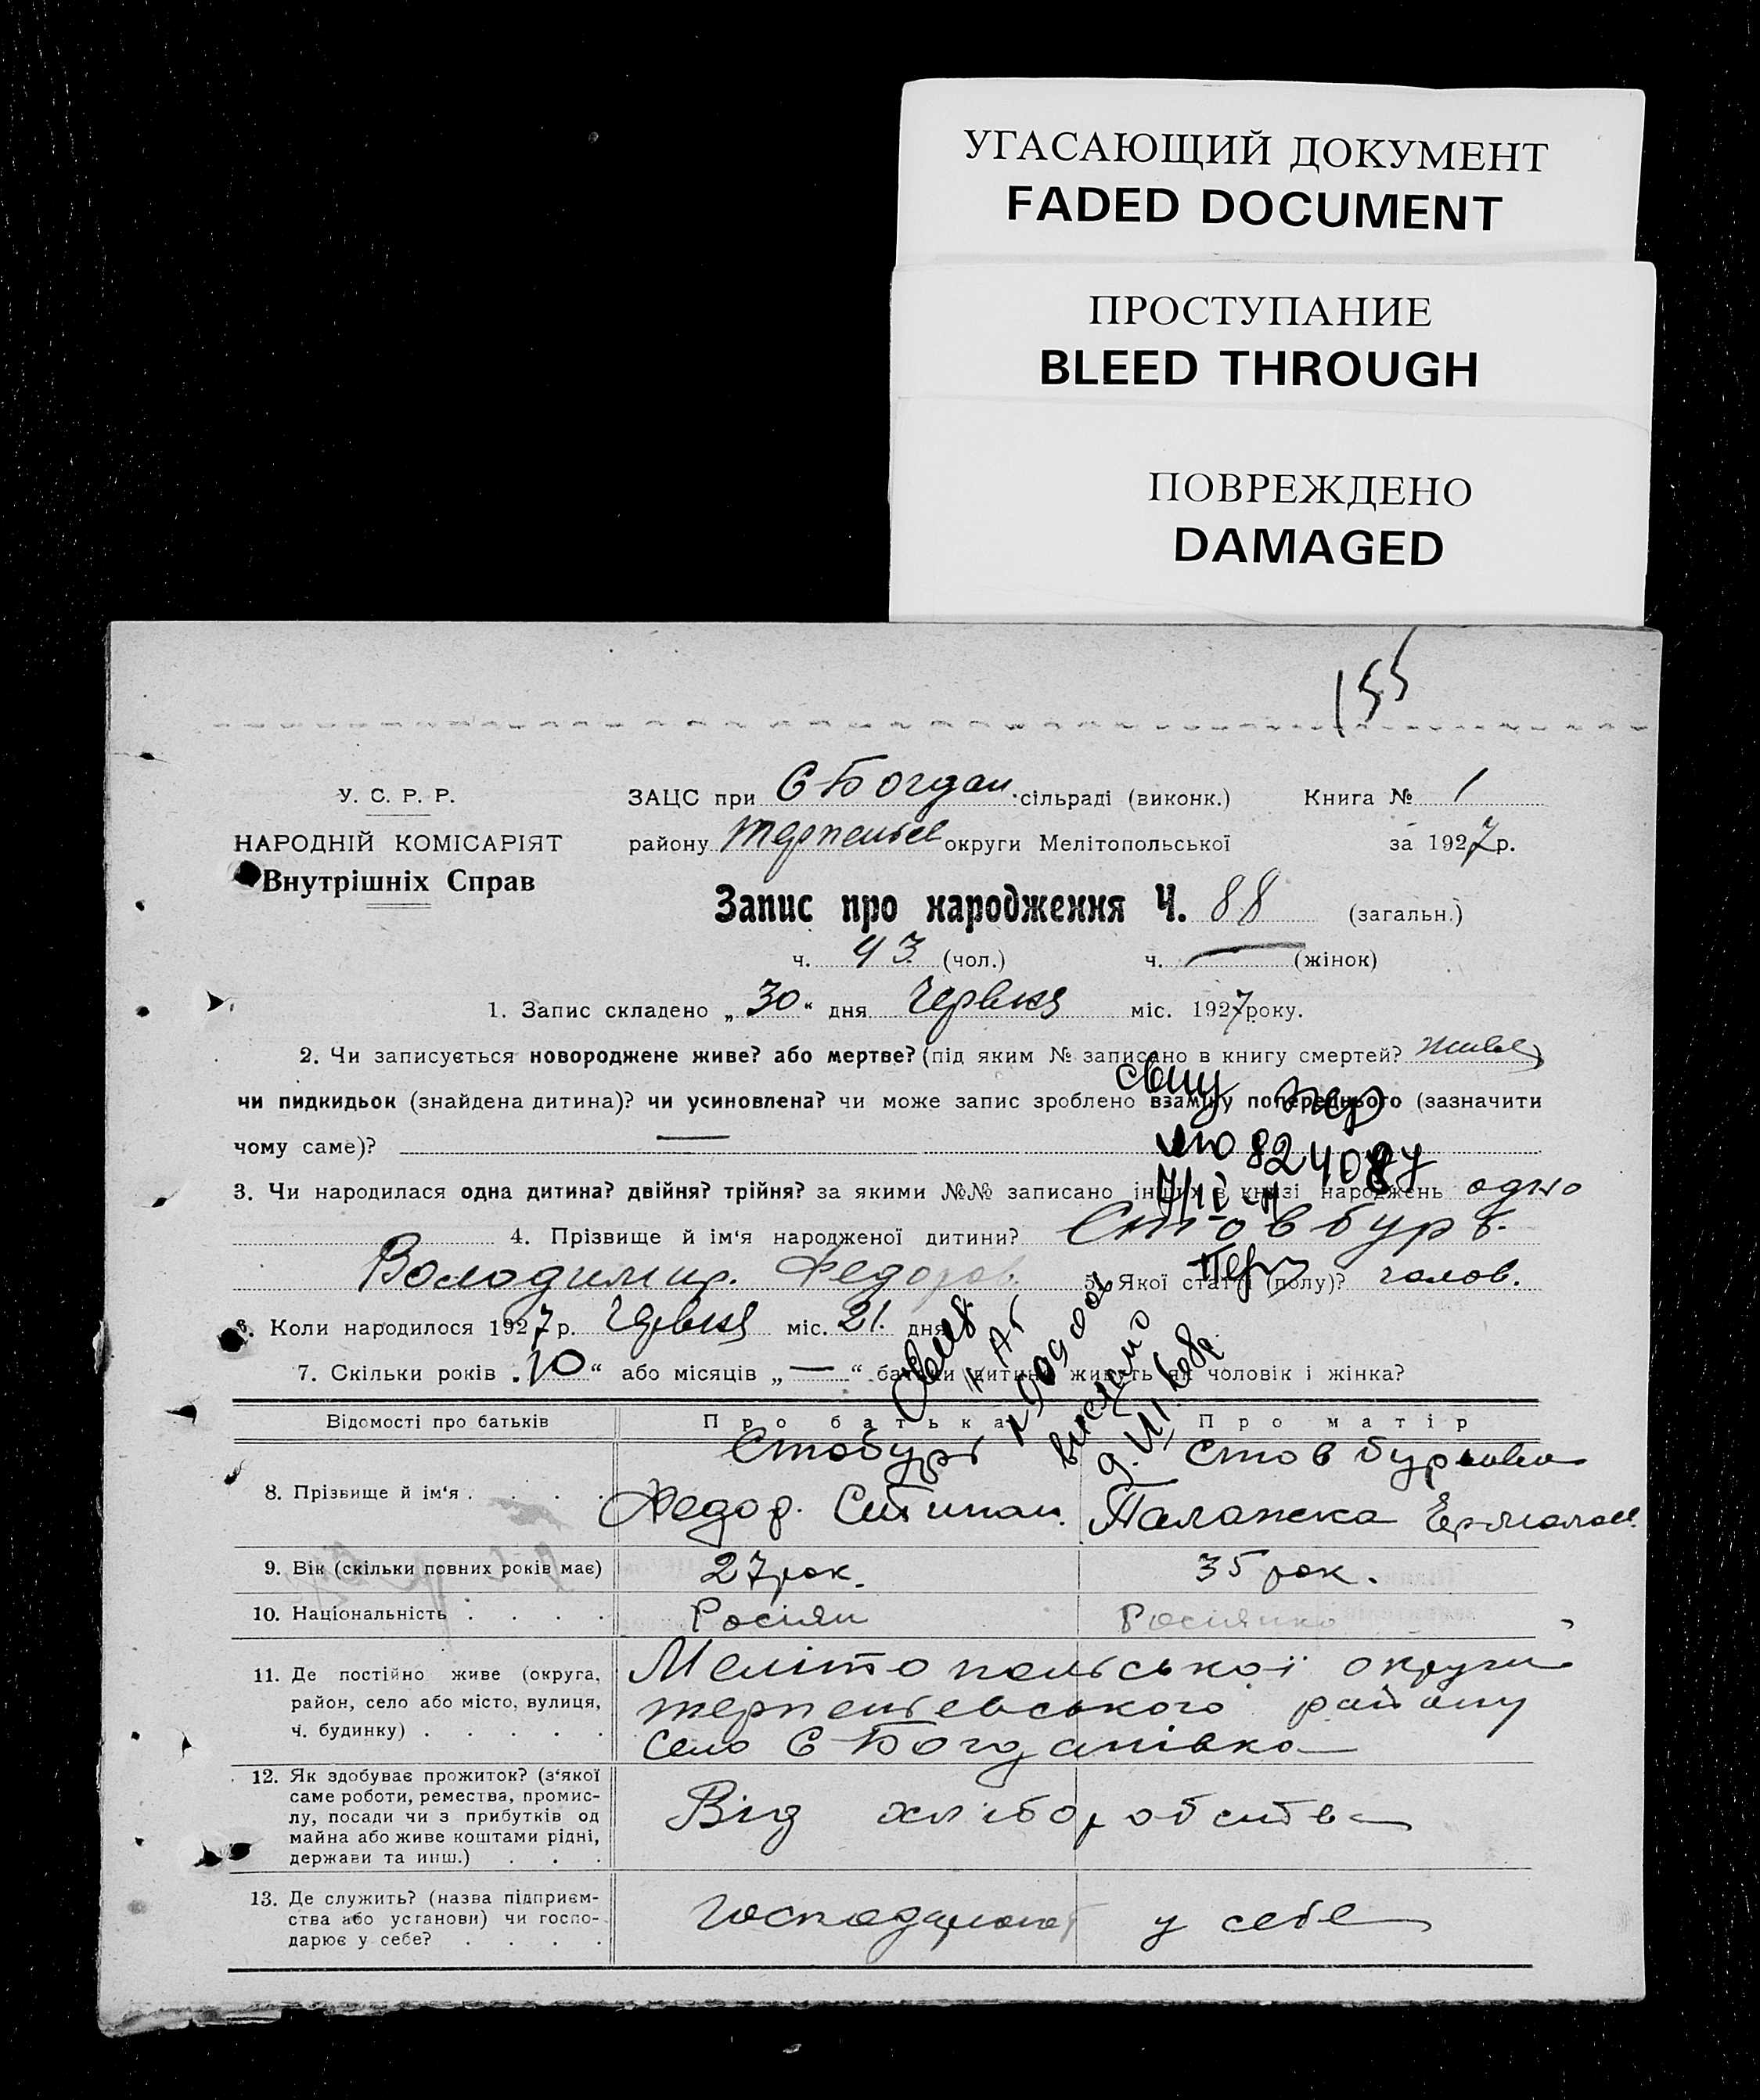 УГАСАЮЩИЙ ДОКУМЕНТ
FADED DOCUMENT
ПРОСТУПАНИЕ
BLEED THROUGH
ПОВРЕЖДЕНО
DAMAGED
155
У. С. Р. Р.
НАРОДНІЙ КОМІСАРІЯТ
Внутрішніх Справ
ЗАЦС при Є-Богдан. сільраді (виконк.) Книга № 1
району Терпеньєв округи Мелітопольської за 1927 р.
Запис про народження Ч. 88 (загальн.)
ч. 43 (чол.) ч. — (жінок)
1. Запис складено „30“ дня Червня міс. 1927 року.
2. Чи записується новороджене живе? або мертве? (під яким № записано в книгу смертей? живе
чи пидкидьок (знайдена дитина)? чи усиновлена? чи може запис зроблено взаміну попереднього (зазначити
чому саме)? —
824087
3. Чи народилася одна дитина? двійня? трійня? за якими №№ записано інших в книзі народжень одно
4. Прізвище й ім'я народженої дитини? Стовбурь.
Володимир. Федоров. 5. Якої статті (полу)? чолов.
6. Коли народилося 1927 р. Червня міс. 21. дня
7. Скільки років „10“ або місяців „—“ батьки дитини живуть як чоловік і жінка?
Відомості про батьків Про батька Про матір
8. Прізвище й ім'я . . . .
Стобурь
Федор. Степан.
Стовбурьова
Палажка Ермолає.
9. Вік (скільки повних років має) 27 рок. 35 рок.
10. Національність . . . . Росіян Росіянка
11. Де постійно живе (округа,
район, село або місто, вулиця,
ч. будинку) . . . . .
Мелітопольської округи
терпеньєвського району
село Є-Богданівка
12. Як здобуває прожиток? (з'якої
саме роботи, ремества, промис-
лу, посади чи з прибутків од
майна або живе коштами рідні,
держави та инш.) . . .
Від хліборобства
13. Де служить? (назва підприєм-
ства або установи) чи госпо-
дарює у себе? . . . .
у себе